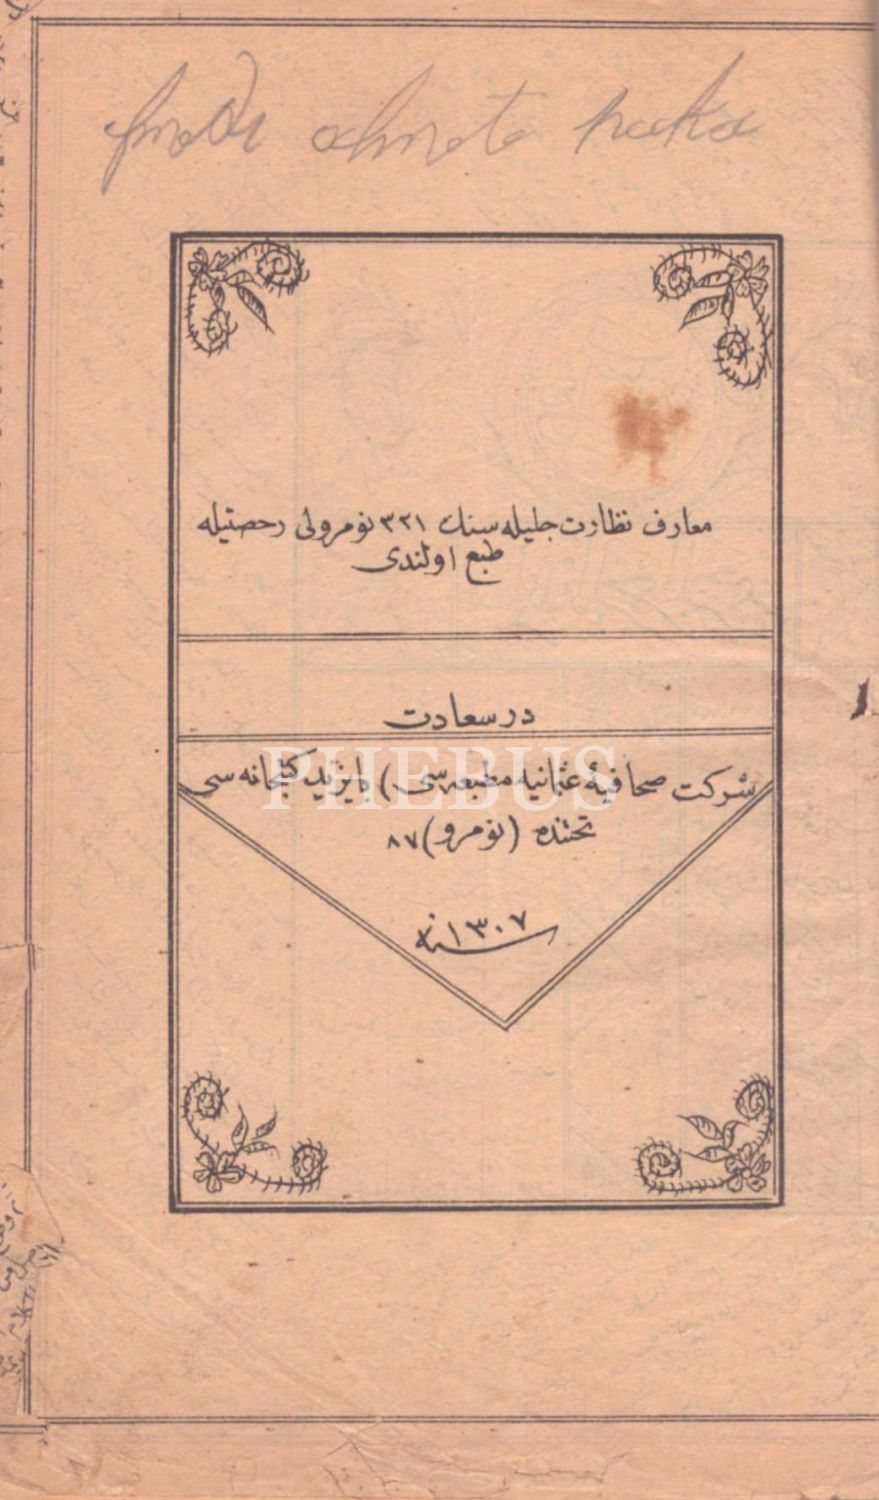 معارف نظارت جلیله سنك ٣٢١ نومرولی رحصتیله
طبع اولندی
در سعادت
شركت صحافیهٔ عثمانیه مطبعه سی) بایزید كتبخانه سی
تحتنده (نومرو) ٨٧
سنه ١٣٠٧
PHEBUS